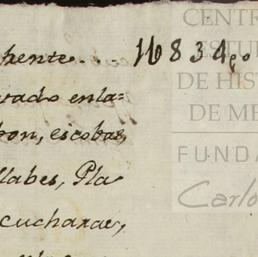 hente... 16834,,0
vado enla=
bon, escobas,
llabes, Pla
cucharas,
CENTR
ESTU
DE HIS
DE ME
FUNDA
Carlo